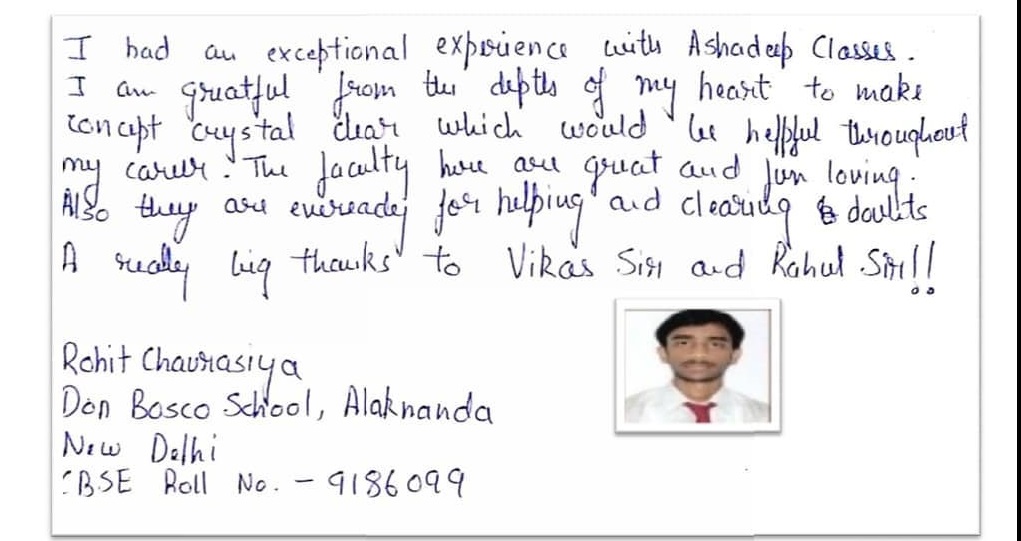 I had an exceptional experience with Ashadeep Classes.
I am greatful from the depths of my heart to make
concept crystal clear which would be helpful throughout
my career. The faculty here are great and fun loving.
Also they are eveready for helping and clearing doubts
A really big thanks to Vikas Sir and Rahul Sir!!
Rohit Chaurasiya
Don Bosco School, Alaknanda
New Delhi
CBSE Roll No. - 9186099